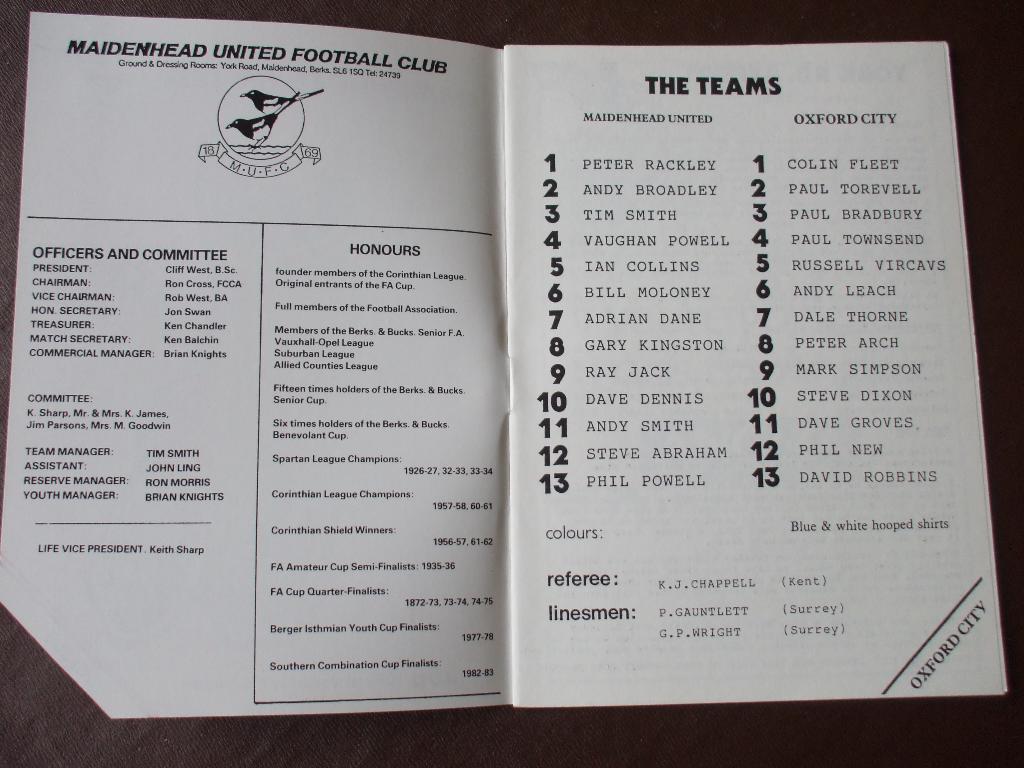 MAIDENHEAD UNITED FOOTBALL CLUB
Ground & Dressing Rooms: York Road, Maidenhead, Berks. SL6 1SQ Tel: 24739
18 69
M·U·F·C
OFFICERS AND COMMITTEE
PRESIDENT: Cliff West, B.Sc.
CHAIRMAN: Ron Cross, FCCA
VICE CHAIRMAN: Rob West, BA
HON. SECRETARY: Jon Swan
TREASURER: Ken Chandler
MATCH SECRETARY: Ken Balchin
COMMERCIAL MANAGER: Brian Knights
COMMITTEE:
K. Sharp, Mr. & Mrs. K. James,
Jim Parsons, Mrs. M. Goodwin
TEAM MANAGER: TIM SMITH
ASSISTANT: JOHN LING
RESERVE MANAGER: RON MORRIS
YOUTH MANAGER: BRIAN KNIGHTS
LIFE VICE PRESIDENT. Keith Sharp
HONOURS
founder members of the Corinthian League.
Original entrants of the FA Cup.
Full members of the Football Association.
Members of the Berks. & Bucks. Senior F.A.
Vauxhall-Opel League
Suburban League
Allied Counties League
Fifteen times holders of the Berks. & Bucks.
Senior Cup.
Six times holders of the Berks. & Bucks.
Benevolant Cup.
Spartan League Champions:
1926-27, 32-33, 33-34
Corinthian League Champions:
1957-58, 60-61
Corinthian Shield Winners:
1956-57, 61-62
FA Amateur Cup Semi-Finalists: 1935-36
FA Cup Quarter-Finalists:
1872-73, 73-74, 74-75
Berger Isthmian Youth Cup Finalists:
1977-78
Southern Combination Cup Finalists:
1982-83
THE TEAMS
MAIDENHEAD UNITED OXFORD CITY
1 PETER RACKLEY 1 COLIN FLEET
2 ANDY BROADLEY 2 PAUL TOREVELL
3 TIM SMITH 3 PAUL BRADBURY
4 VAUGHAN POWELL 4 PAUL TOWNSEND
5 IAN COLLINS 5 RUSSELL VIRCAVS
6 BILL MOLONEY 6 ANDY LEACH
7 ADRIAN DANE 7 DALE THORNE
8 GARY KINGSTON 8 PETER ARCH
9 RAY JACK 9 MARK SIMPSON
10 DAVE DENNIS 10 STEVE DIXON
11 ANDY SMITH 11 DAVE GROVES.
12 STEVE ABRAHAM 12 PHIL NEW
13 PHIL POWELL 13 DAVID ROBBINS
colours: Blue & white hooped shirts
referee: K.J.CHAPPELL (Kent)
linesmen: P.GAUNTLETT (Surrey)
G.P.WRIGHT (Surrey)
OXFORD CITY